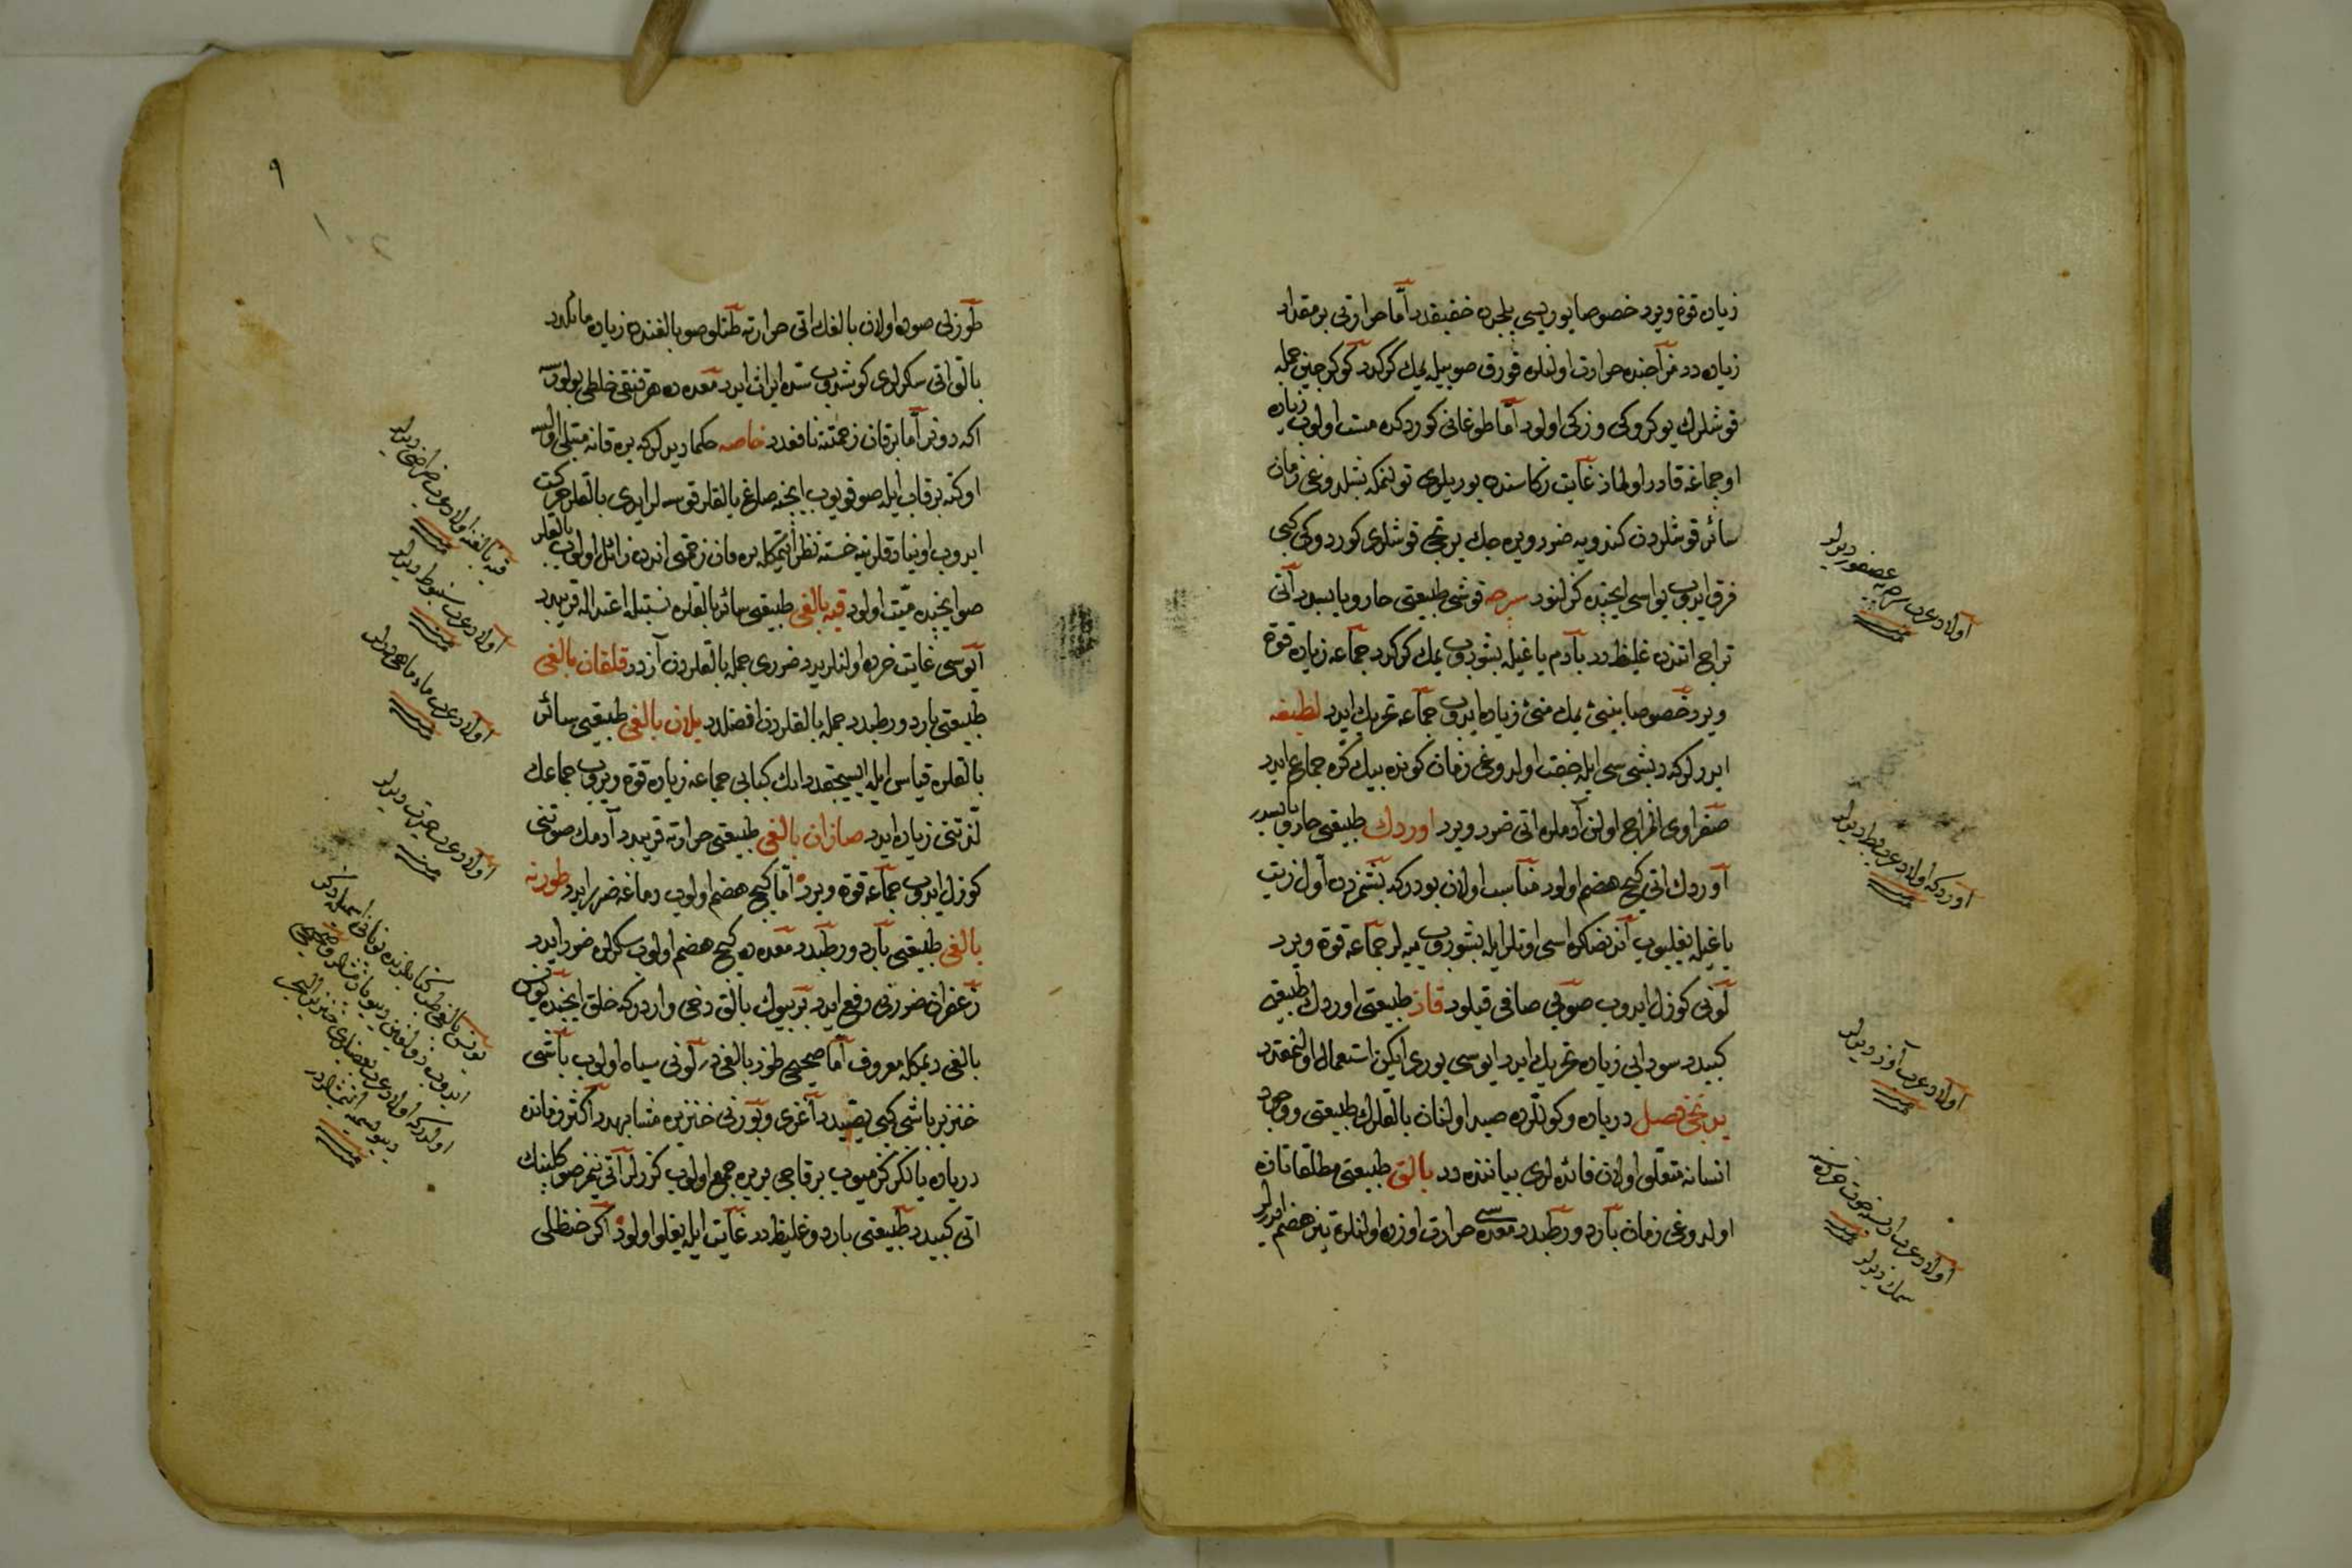 زیاده قوة ویرر خصوصا یوریسی یلجره خفیفدر اما حرارتی بر مقدار
زیاده در مزاجنده حرارت اولنلره قورق صوییله یمك كركدر كوكرجین جمله
قوشلرك یوكروكی و زكی اولور اما طوغانی كوردكده مست اولوب زیاده
اوچماغه قادر اولماز غایت زكاسنده یوریلری تولنمكه بشلدوغی زمان
سائر قوشلردن كندویه ضرر ویره جك یرتجی قوشلری كوردوكی كبی
فرق ایدوب یواسی ایچنده كزلنور سرچه قوشی طبیعتی حار و یابسدر اتی
تراجی اتندن غلیظدر بادم یاغیله بشوروب یمك كركدر جماعه زیاده قوة
ویرر خصوصا بینیئ یمك منیئ زیاده ایدوب جماعه تحریك ایدر لطیفه
ایدرلركه دیشی سی ایله جفت اولدوغی زمان كونده بیك كره جماع ایدر
صفراوی المزاج اولن آدملره اتی ضرر ویرر اوردك طبیعتی حار و یابسدر
اوردك اتی كیچ هضم اولور مناسب اولان بودركه بشمزدن اول زیت
یاغیله یغلیوب اندنصكره اسی اوتلر ایله بشوروب ییه لر جماعه قوة ویرر
لونی كوزل ایدوب صوتی صافی قیلور قاز طبیعتی اوردك طبیعتی
كبیدر سودایی زیاده تحریك ایدر ایوسی یوری ایكن استعمال اولنمقدر
برنجی فصل دریاده و كوللرده صید اولنان بالقلرك طبیعتی و وجود
انسانه متعلق اولان فائده لری بیاننده در بالق طبیعتی مطلقا تازه
اولدوغی زمان بارد و رطبدر معده سی حرارت اوزره اولنلره تیز هضم ایدرلر
اولادر عرب سرچه یه عصفور دیرلر
اوردكه اولادر عرب بط دیرلر
اولادر عرب اوز دیرلر
سمك دیرلر
۹
طوزلی صوده اولان بالغك اتی حرارته طتلو صو بالغندن زیاده مائلدر
بالق اتی سكرلری كوشدوب سده ایراث ایدر معده ده هر قنقی خلطی بولورسه
اكه دونر اما یرقان زحمتنه نافعدر خاصه حكما دیرلركه یره قانه مبتلا اولسه
اوكنه بر قاب ایله صو قویوب ایچنه صاغ بالقلر قوسه لر ایدی بالقلر حركت
ایدوب اوینادقلرینه خسته نظر ایتمكله یره قان زحمتی اندن زائل اولوب بالقلر
صو ایچنده میت اولور قیه بالغی طبیعتی سائر بالقلره نسبتله اعتداله قریبدر
ایوسی غایت خرده اولنلریدر ضرری جمله بالقلردن آزدر قلقان بالغی
طبیعتی بارد و رطبدر جمله بالقلردن افضلدر یلان بالغی طبیعتی سائر
بالقلره قیاس ایله ایسیجقدر انك كبابی جماعه زیاده قوة ویروب جماعك
لذتنی زیاده ایدر صازان بالغی طبیعتی حرارته قریبدر آدمك صوتنی
كوزل ایدوب جماعه قوة ویرر اما كیچ هضم اولوب دماغه ضرر ایدر طورنه
بالغی طبیعتی بارد و رطبدر معده ده كیچ هضم اولوب سكرلره ضرر ایدر
زعفران ضررنی رفع ایدر بر بیوك بالق دخی واردركه خلق ایچنده یونس
بالغی دیمكله معروف اما صحیحی طوز بالغی در لونی سیاه اولوب باشی
خنزیر باشی كبی یصیدر آغزی و بورنی خنزیره مشابهدر اكثر زمانده
دریاده یالكز كزمیوب بر قاچی بر یره جمع اولوب كزرلر اتی نیم صو كلبنك
اتی كبیدر طبیعتی بارد و غلیظدر غایت ایله یغلو اولور اكر حنظلی
قیه بالغنه اولادر عرب
اولادر عرب شبوط دیرلر
اولادر عرب مارماهی دیرلر
اولادر عرب دیرلر